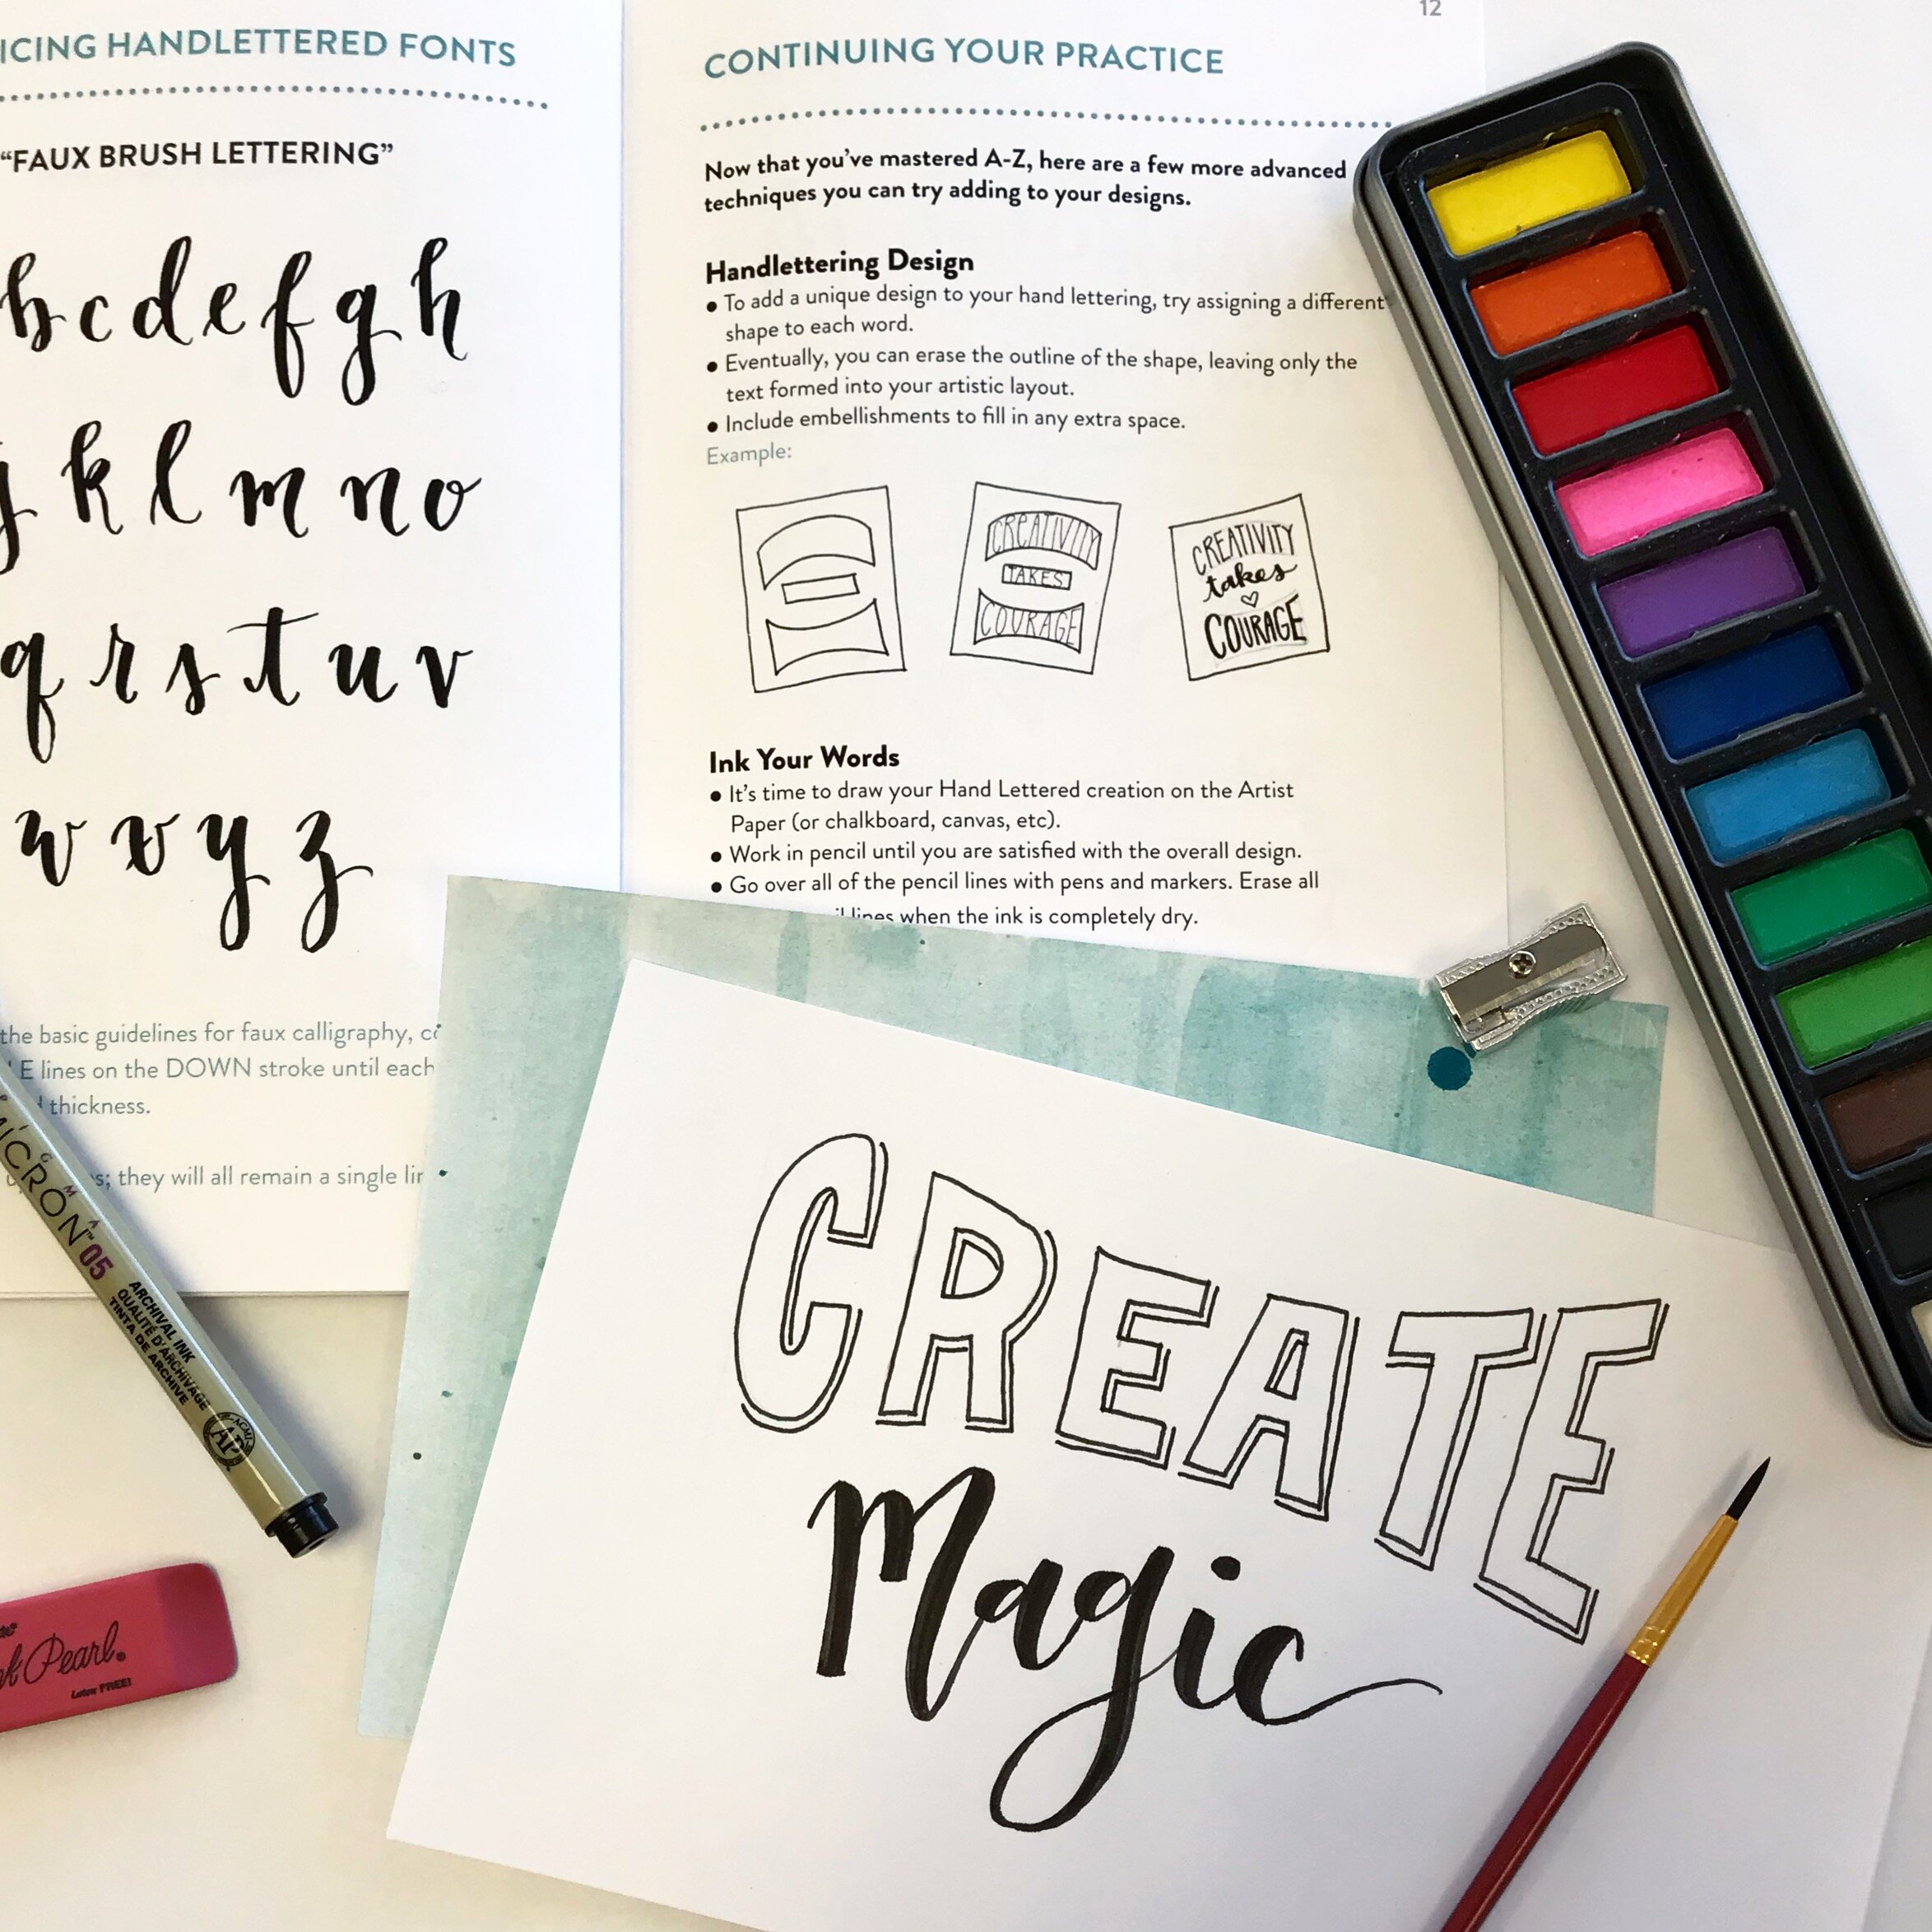 ICING HANDLETTERED FONTS
“FAUX BRUSH LETTERING”
b c d e f g h
j k l m n o
q r s t u v
w x y z
the basic guidelines for faux calligraphy,
lines on the DOWN stroke until each
thickness.
they will all remain a single
12
CONTINUING YOUR PRACTICE
Now that you’ve mastered A-Z, here are a few more advanced
techniques you can try adding to your designs.
Handlettering Design
● To add a unique design to your hand lettering, try assigning a different
shape to each word.
● Eventually, you can erase the outline of the shape, leaving only the
text formed into your artistic layout.
● Include embellishments to fill in any extra space.
Example:
CREATIVITY
TAKES
COURAGE
CREATIVITY
takes
COURAGE
Ink Your Words
● It’s time to draw your Hand Lettered creation on the Artist
Paper (or chalkboard, canvas, etc).
● Work in pencil until you are satisfied with the overall design.
● Go over all of the pencil lines with pens and markers. Erase all
lines when the ink is completely dry.
MICRON™ 05
ARCHIVAL INK
QUALITÉ D'ARCHIVAGE
TINTA DE ARCHIVE
ACMI
AP
Pearl®
Latex FREE!
CREATE
Magic